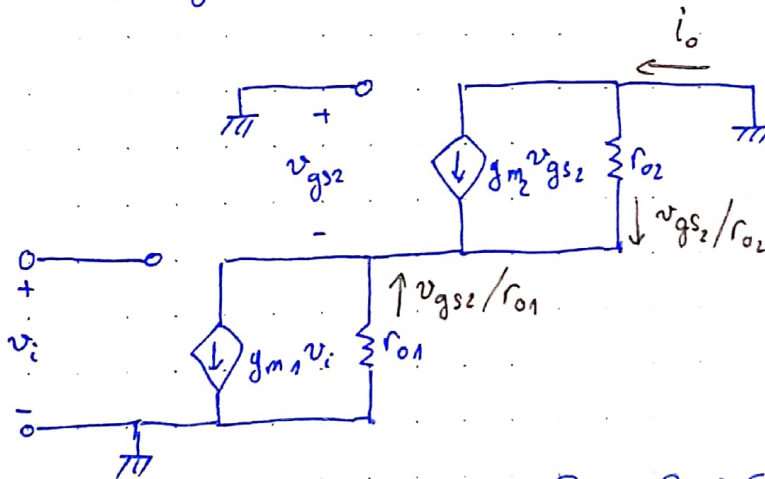 i₀
+
v_gs2
-
g_m2 v_gs2
r_02
v_gs2/r_02
+
v_i
-
v_gs2/r_01
g_m1 v_i
r_01